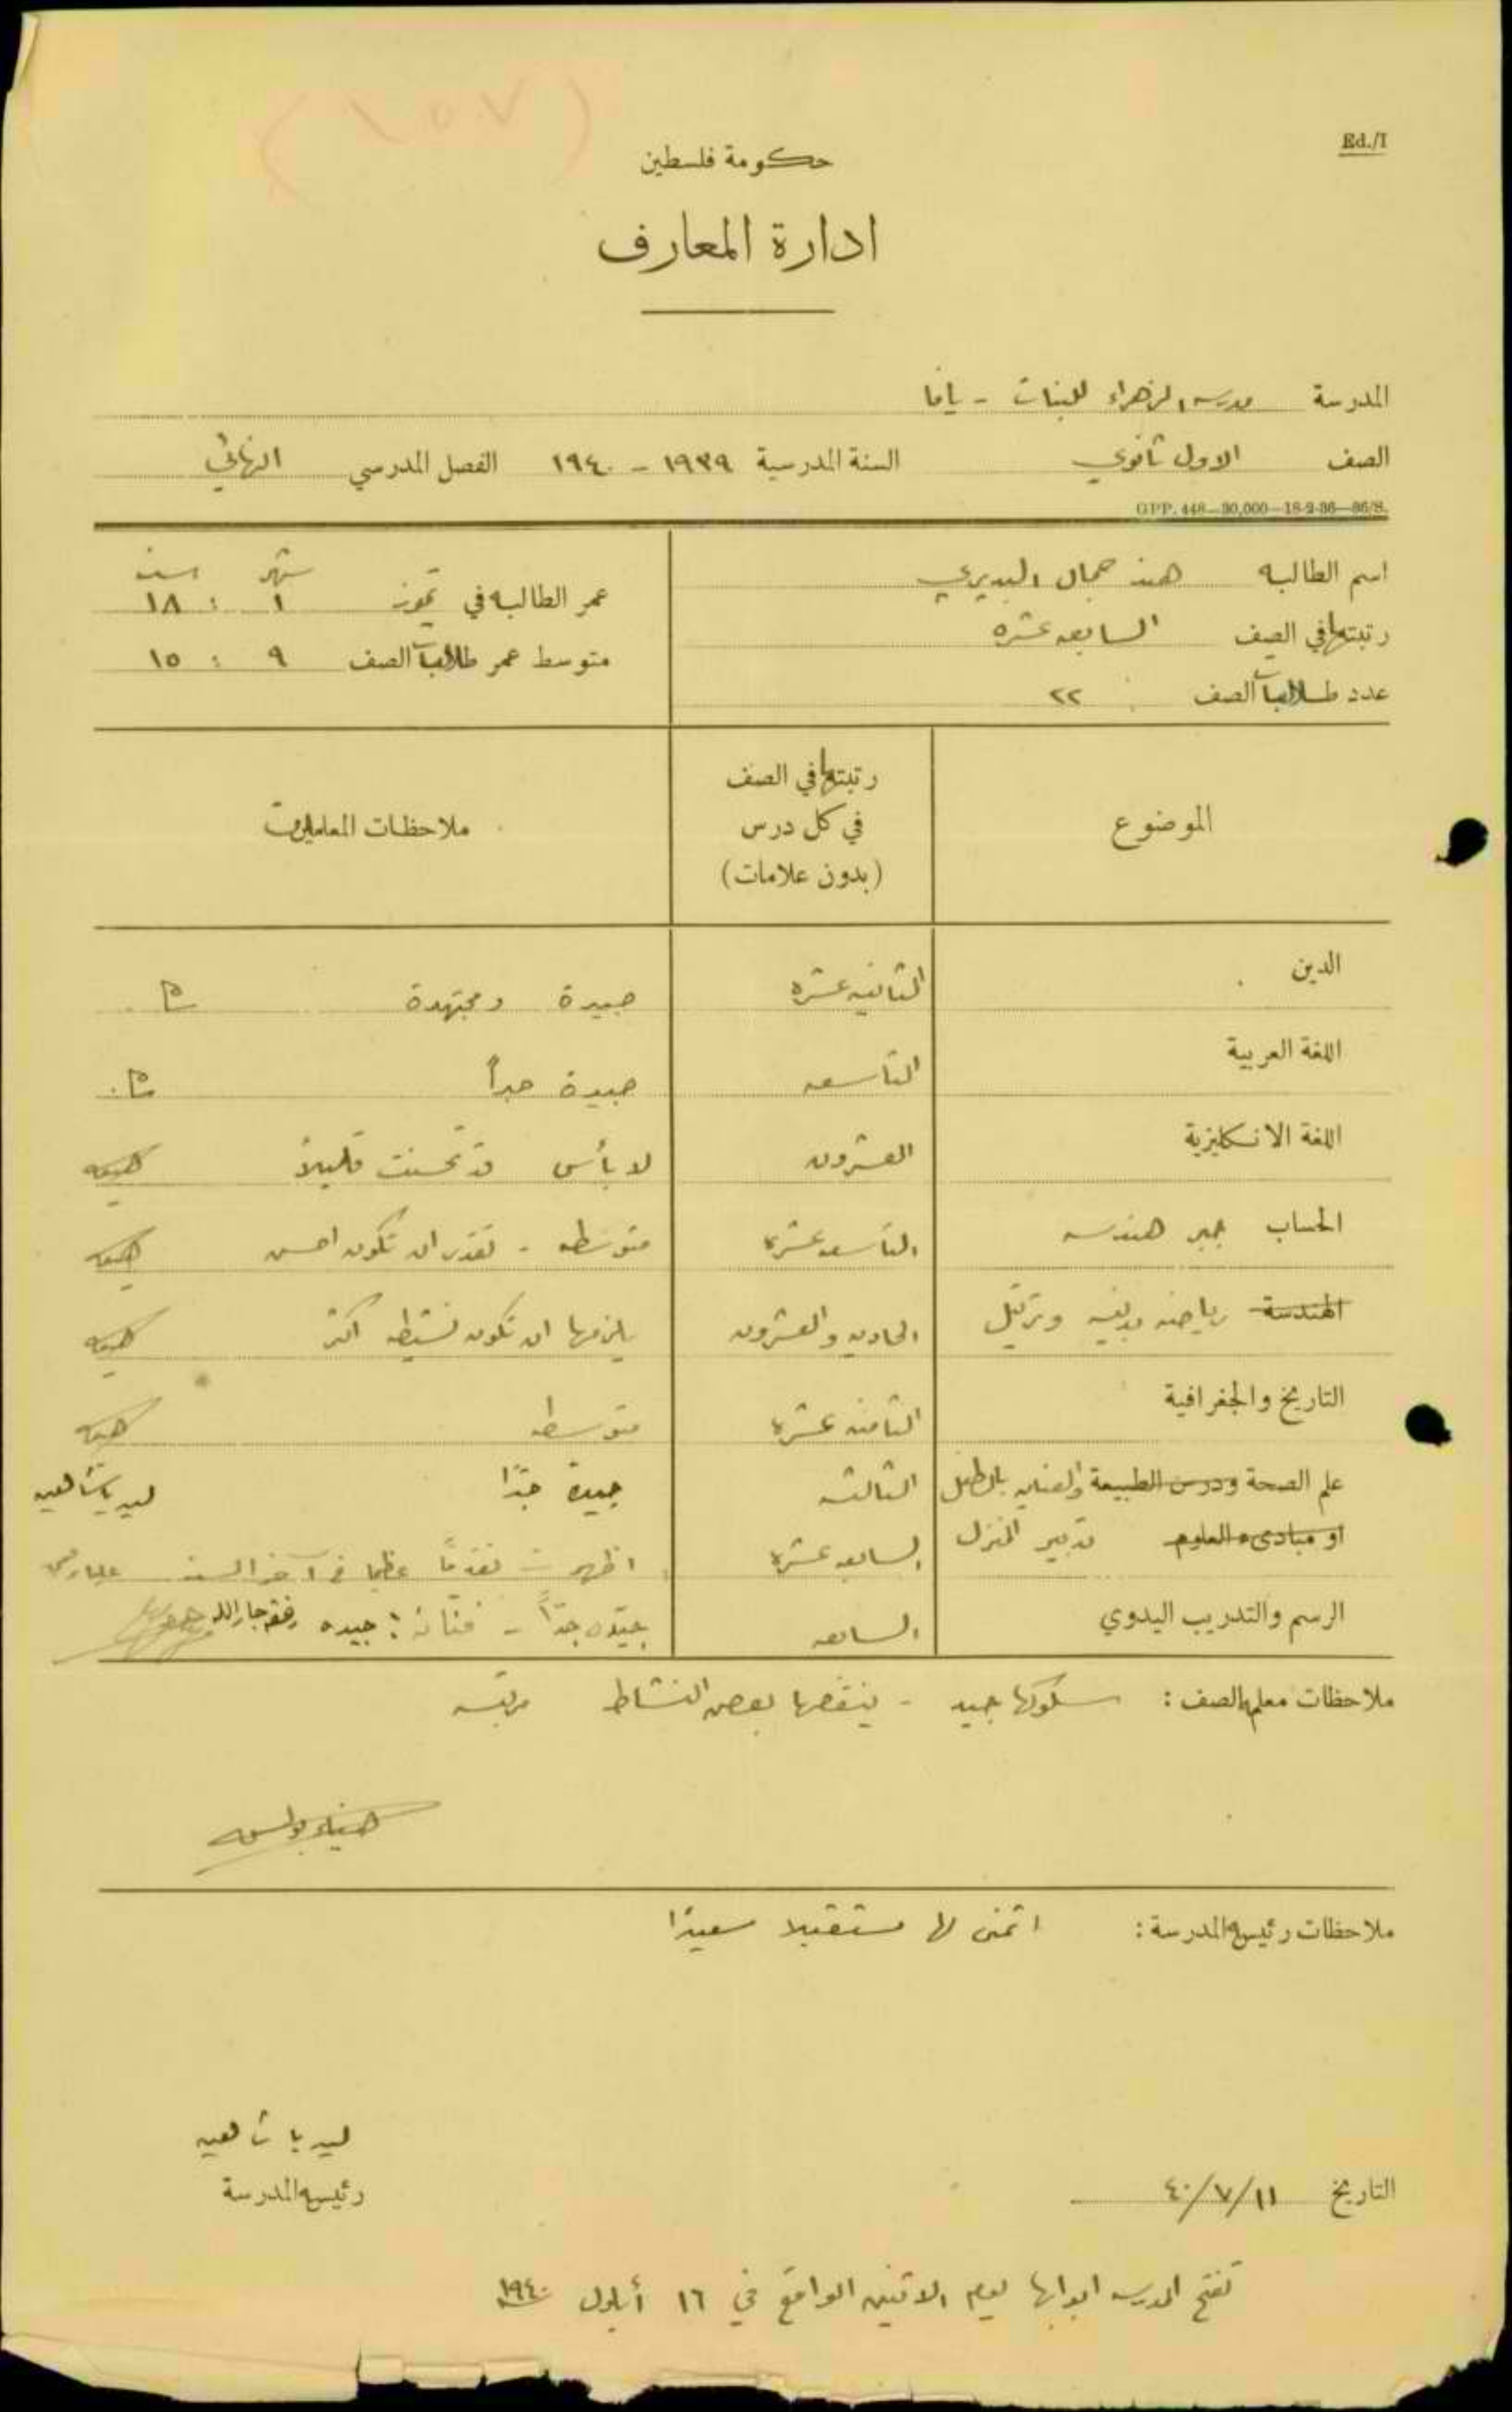 (١٥٧)
Ed./I
حكومة فلسطين
ادارة المعارف
المدرسة مدرسة الزهراء للبنات - يافا
الصف الاول ثانوي السنة المدرسية ١٩٣٩ - ١٩٤٠ الفصل المدرسي النهائي
GPP. 448—30,000—18-2-36—86/S.
اسم الطالبه هند جمال البديري
رتبتها في الصف السابعه عشره
عدد طالبات الصف ٢٢
شهر سنه
عمر الطالبه في تموز ١ : ١٨
متوسط عمر طالبات الصف ٩ : ١٥
الموضوع
رتبتها في الصف
في كل درس
(بدون علامات)
ملاحظات المعلمات
الدين الثانيه عشره جيدة ومجتهدة
اللغة العربية التاسعه جيدة جداً
اللغة الانكليزية العشرون لا بأس قد تحسنت قليلاً
الحساب جبر هندسه التاسعه عشره متوسطه - تقدر ان تكون احسن
الهندسة رياضه بدنيه وترتيل الحاديه والعشرون يلزمها ان تكون نشيطه اكثر
التاريخ والجغرافية الثامنه عشره متوسطه
علم الصحة ودرس الطبيعة والعنايه بالطفل الثالثه جيدة جدًا
او مبادىء العلوم تدبير المنزل السابعه عشره اظهرت تقدمًا عظيما في آخر السنه
الرسم والتدريب اليدوي السابعه جيده جدًا - فنانه : جيده
ملاحظات معلمة الصف : سلوكها جيد - ينقصها بعض النشاط مرتبه
ملاحظات رئيسة المدرسة : اتمنى لها مستقبلا سعيدًا
رئيسة المدرسة
التاريخ ١١/٧/٤٠
تفتح المدرسه ابوابها يوم الاثنين الواقع في ١٦ أيلول ١٩٤٠